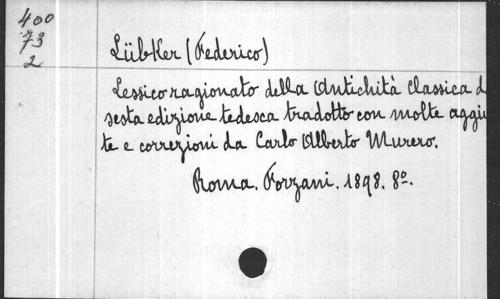 400
73
2
Lübker (Federico)
Lessico ragionato della Antichità Classica d
sesta edizione tedesca tradotto con molte aggiu
te e correzioni da Carlo Alberto Murero.
Roma. Forzani. 1898. 8º.